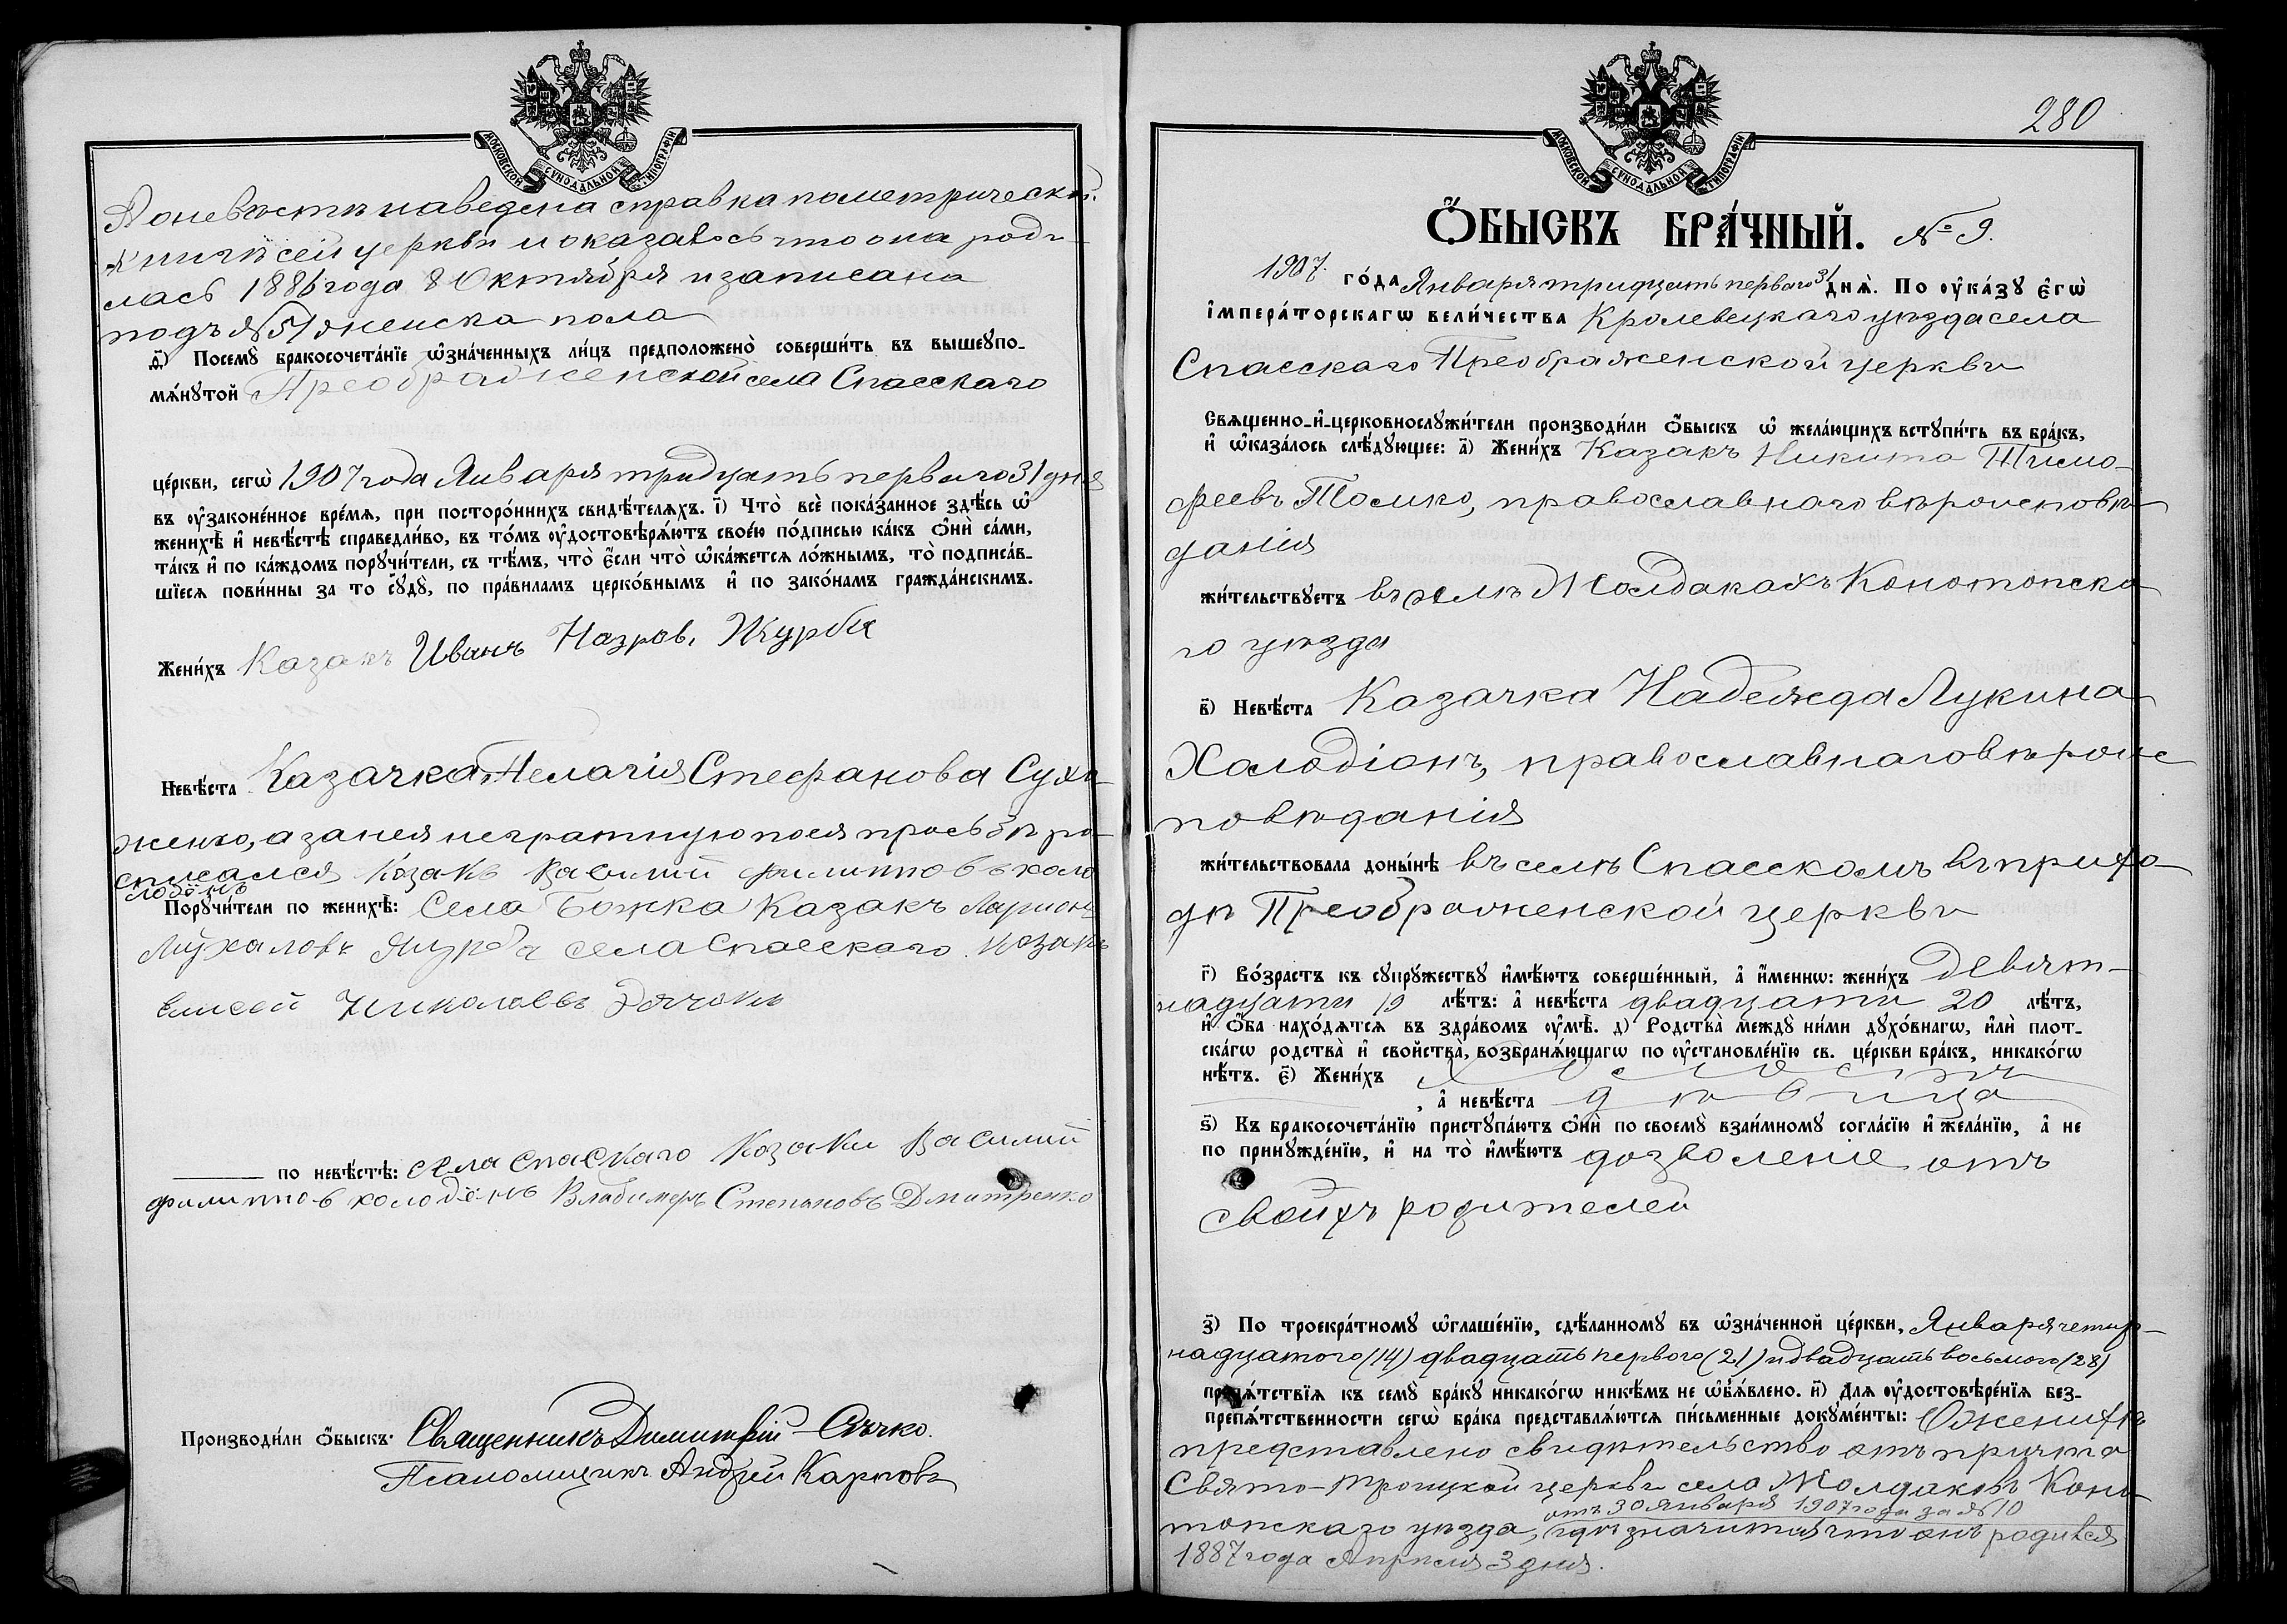 МОСКОВСКОЙ СѴНОДАЛЬНОЙ ТИПОГРАФІИ
О невѣстѣ наведена справка по метрической
книгѣ сей церкви и оказалось что она роди-
лась 1886 года 8 Октября и записана
подъ №51 женска пола
д҃) Посемꙋ̀ бракосочета́нїе ѡ҆зна́ченныхъ ли́цъ предположено̀ соверши́ть въ вышеꙋпо-
мѧ́нꙋтой Преображенской села Спасскаго
це́ркви, сегѡ̀ 1907 года Января тридцать перваго 31 дня
въ оу҆законе́нное вре́мѧ, при посторо́ннихъ свидѣ́телѧхъ. і҃) Что̀ всѐ пока́занное здѣ́сь ѡ҆
женихѣ̀ и҆ невѣ́стѣ справедли́во, въ то́мъ оу҆достовѣрѧ́ютъ свое́ю по́дписью ка́къ ѻ҆нѝ са́ми,
та́къ и҆ по ка́ждомъ порꙋчи́тели, съ тѣ́мъ, что̀ є҆́сли что̀ ѡ҆ка́жетсѧ ло́жнымъ, то̀ подписа́в-
шїесѧ пови́нны за то сꙋдꙋ̀, по пра́виламъ церко́внымъ и҆ по зако́намъ гражда́нскимъ.
Жени́хъ Казакъ Иванъ Назров. Журба
Невѣ́ста Казачка Пелагія Стефанова Сухо-
женко, а за нея неграмтную по ея просьбѣ ро-
списался Козакъ Василий Филиппов холо
лодёнъ
Порꙋчи́тели по женихѣ̀: Села Божка Казакъ Ларионъ
Мухаловъ Журба села Спасскаго Козакъ
Елисей Николаевъ Дячокъ
по невѣ́стѣ: села спаскаго Козаки Василий
филиппов холодёнъ Владимеръ Степановъ Дмитренко
Производи́ли ѻ҆́быскъ: Священникъ Димитрій Сѣчко.
Псаломщикъ Андрей Карповъ
280
МОСКОВСКОЙ СѴНОДАЛЬНОЙ ТИПОГРАФІИ
Ѻ҆́БЫСКЪ БРА́ЧНЫЙ. №9.
1907. го́да Января тридцать перваго 31 днѧ̀. По оу҆ка́зꙋ є҆гѡ̀
і҆мпера́торскагѡ вели́чества Кролевецкаго уѣзда села
Спасскаго Преображенской церкви
Свѧщенно-и҆-церковнослꙋжи́тели производи́ли ѻ҆́быскъ ѡ҆ жела́ющихъ встꙋпи́ть въ бра́къ,
и҆ ѡ҆каза́лось слѣ́дꙋющее: а҃) Жени́хъ Казакъ Никита Тимо-
феевъ Томко, православнаго вѣроисповѣ-
данія
жи́тельствꙋетъ въ селѣ Жолдакахъ Конотопска-
го уѣзда
в҃) Невѣ́ста Казачка Надежда Лукина
Холодіонъ, православнаго вѣроис
повѣданія
жи́тельствовала доны́нѣ въ селѣ Спасскомъ въ прихо-
дѣ Преображенской церкви
г҃) Во́зрастъ къ сꙋпрꙋ́жествꙋ и҆мѣ́ютъ соверше́нный, а҆ и҆́меннѡ: жени́хъ Девят-
надцати 19 лѣ́тъ: а҆ невѣ́ста двадцати 20 лѣ́тъ,
и҆ ѻ҆́ба нахо́дѧтсѧ въ здра́вомъ оу҆мѣ̀. д) Родства̀ междꙋ̀ ни́ми дꙋхо́внагѡ, и҆лѝ плот-
ска́гѡ родства̀ и҆ свойства̀, возбранѧ́ющагѡ по оу҆становле́нїю св. це́ркви бра́къ, никако́гѡ
нѣ́тъ. є҃) Жени́хъ холостъ
, а҆ невѣ́ста дѣвица
ѕ҃) Къ бракосочета́нїю пристꙋпа́ютъ ѻ҆нѝ по своемꙋ̀ взаи́мномꙋ согла́сїю и҆ жела́нїю, а҆ не
по принꙋжде́нїю, и҆ на то̀ и҆мѣ́ютъ дозволеніе отъ
своихъ родителей
з҃) По троекра́тномꙋ ѡ҆глаше́нїю, сдѣ́ланномꙋ въ ѡ҆зна́ченной це́ркви, Января четыр-
надцатого (14) двадцать перваго (21) и двадцать восьмого (28)
препѧ́тствїѧ къ семꙋ̀ бра́кꙋ никако́гѡ никѣ́мъ не ѡ҆б̾ѧ́влено. и҃) Длѧ оу҆достовѣре́нїѧ без-
препѧ́тственности сегѡ̀ бра́ка представлѧ́ютсѧ пи́сьменные докꙋме́нты: О женихѣ
представлено свидѣтельство отъ причта
Свято-Троицкой церкви села Жолдаковъ Коно-
отъ 30 Января 1907 года за №10
топскаго уѣзда, гдѣ значится что онъ родился
1887 года Апрѣля 3 дня.